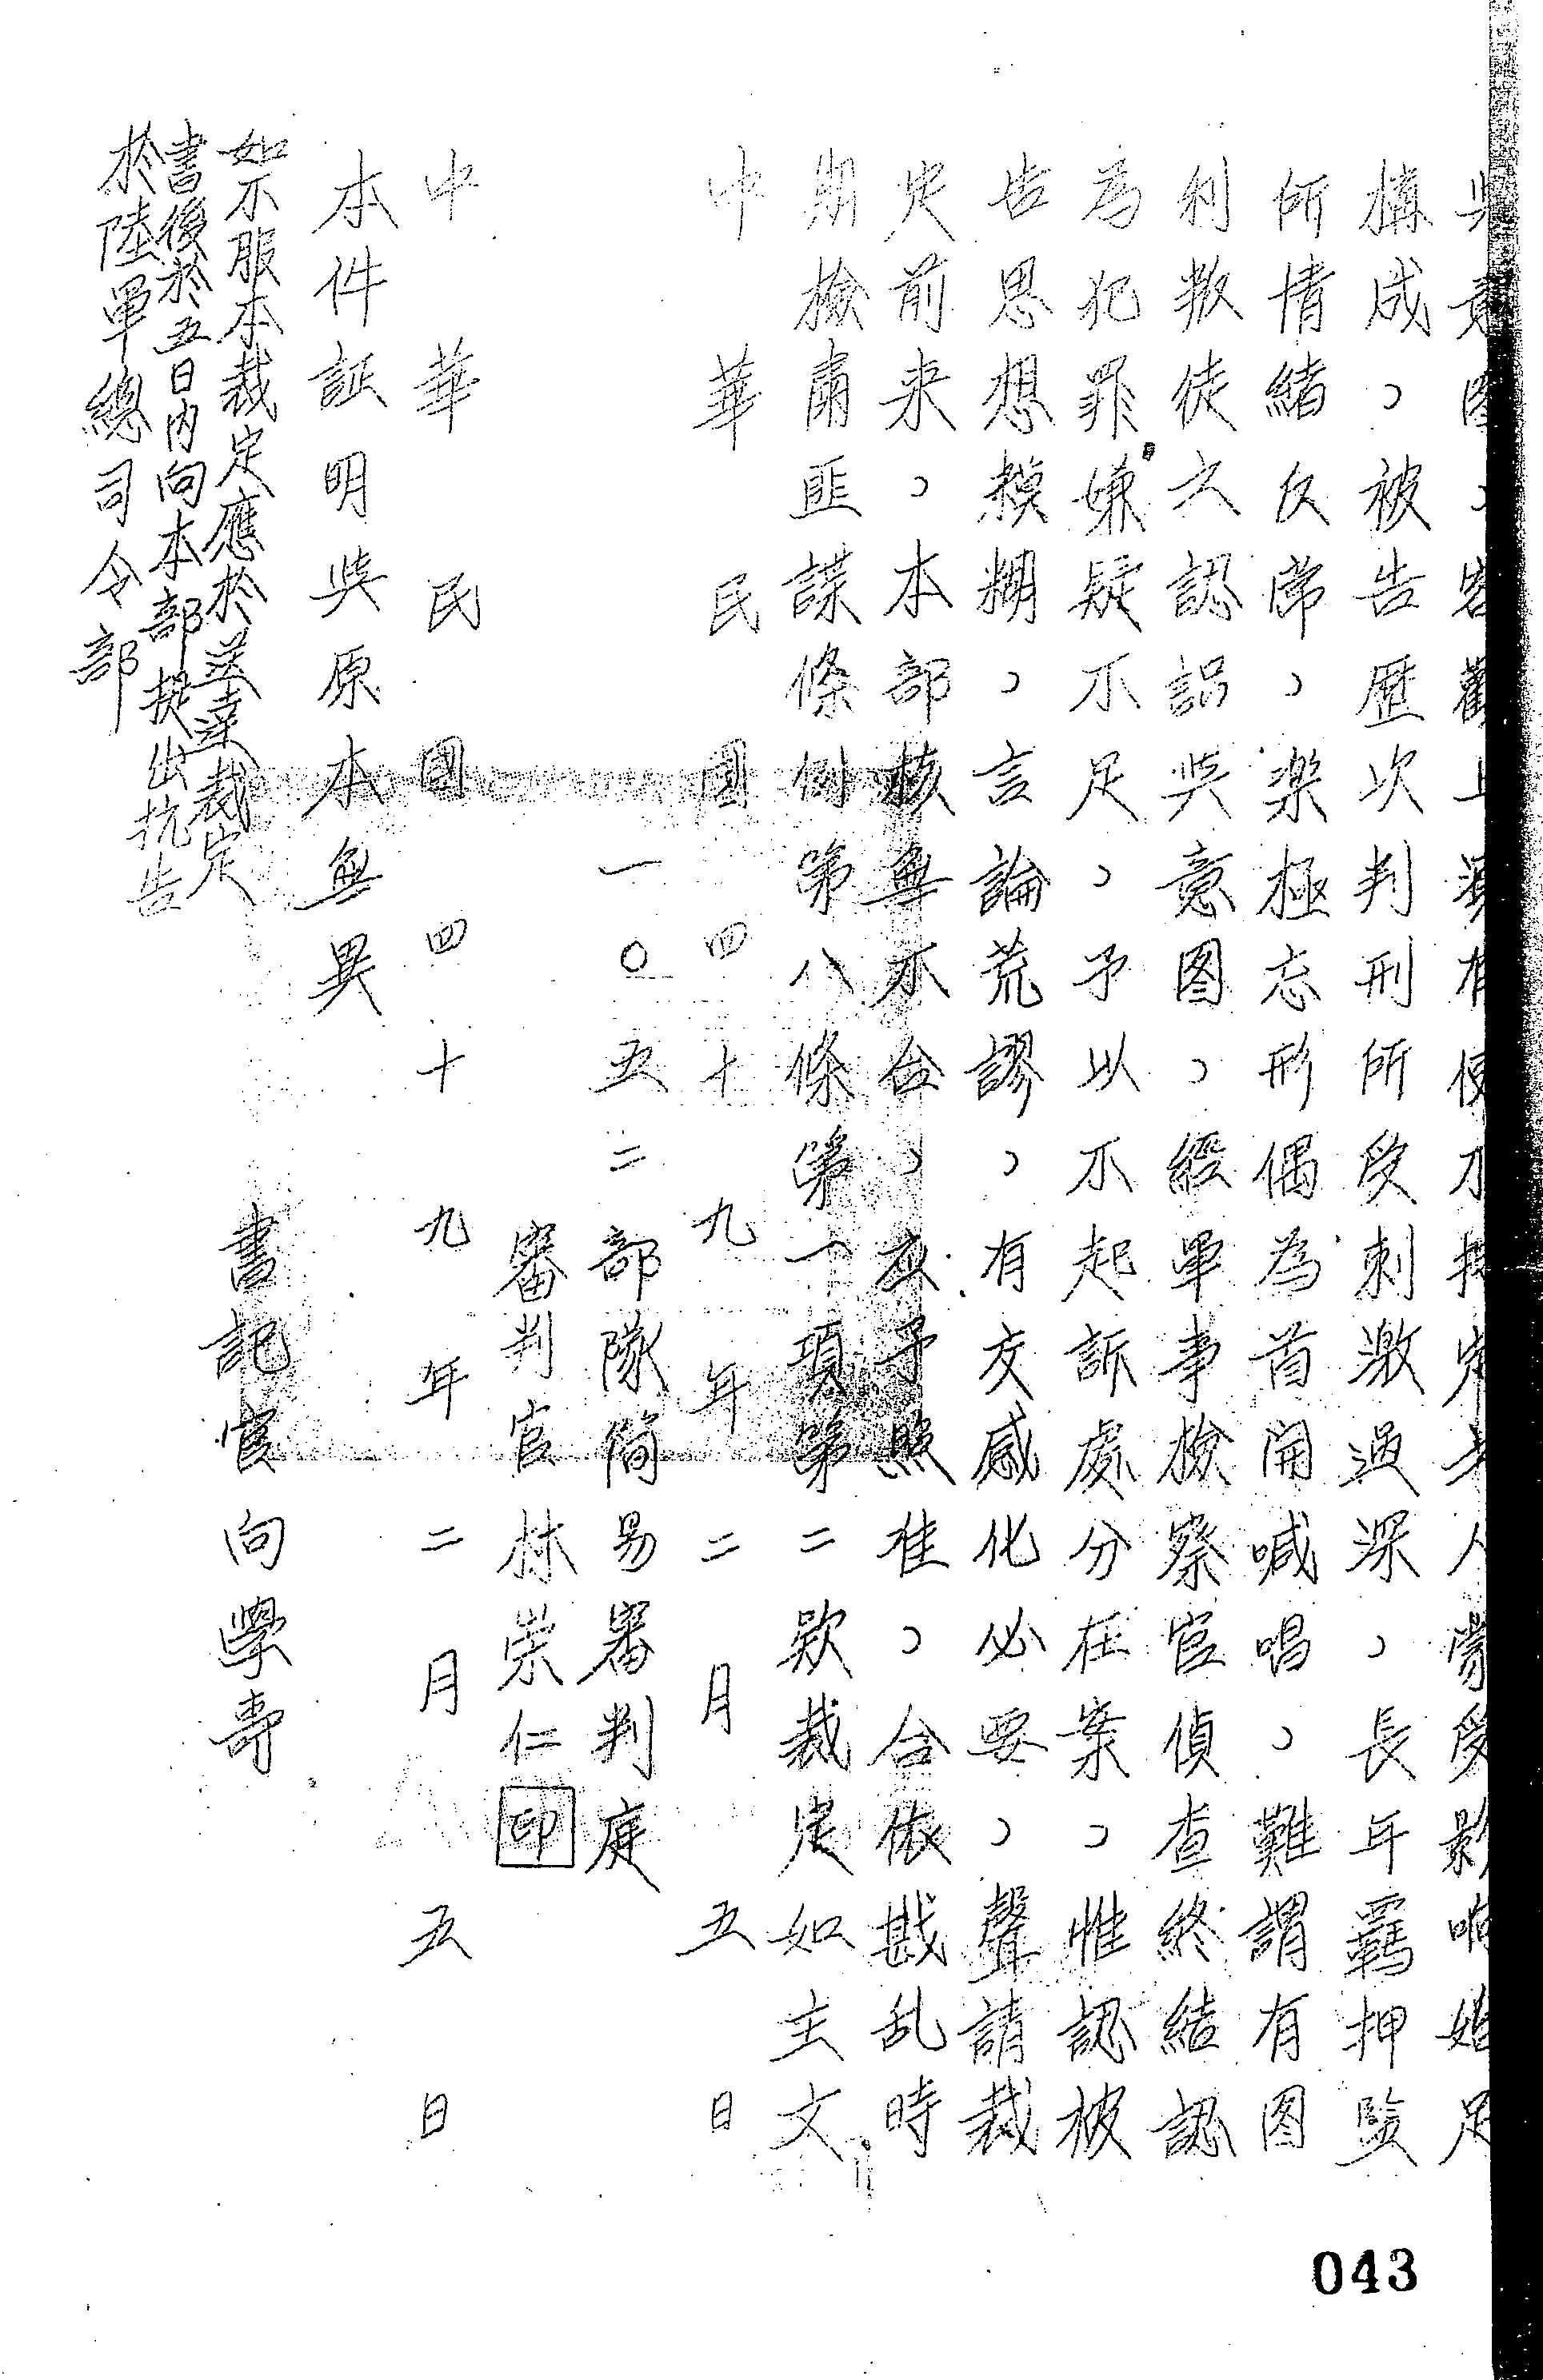 意图、客觀上須有使不特定多人當受影响始足
構成、被告歷次判刑所受刺激過深、長年羈押監
所情緒反常、樂極忘形偶為首開喊唱、難謂有图
利叛徒之認識與意图、經軍事檢察官偵查終結認
為犯罪嫌疑不足、予以不起訴處分在案、惟認被
告思想模糊、言論荒謬、有交感化必要、聲請裁
定前来、本部核無不合、應予照准、合依戡乱時
期檢肅匪諜條例第八條第一項第二款裁定如主文
中華民國四十九年二月五日
一〇五二部隊簡易審判庭
審判官林崇仁印
中華民國四十九年二月五日
本件証明與原本無異
書記官向學壽
如不服本裁定應於送達裁定
書後於五日内向本部提出抗告
於陸軍總司令部
043